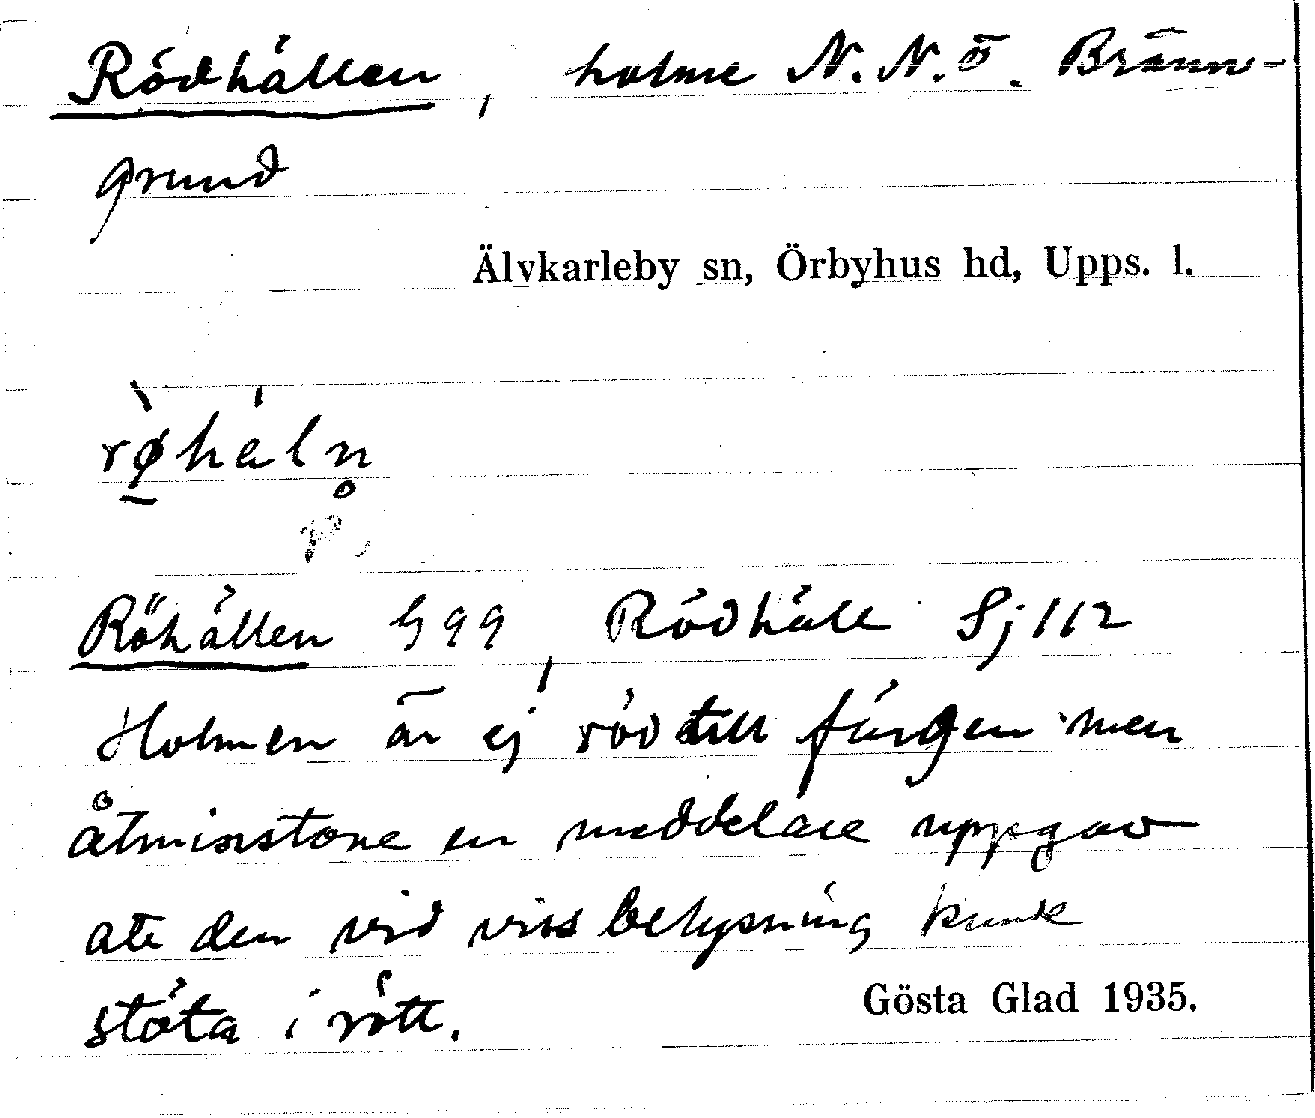 Rödhällen, holme N.N.ö. Bränn-
grund
Älvkarleby sn, Örbyhus hd, Upps. l.
rø̀häln̥
Röhällen G 99, Rödhäll Sj 112
Holmen är ej röd till färgen men
åtminstone en meddelare uppgav
att den vid viss belysning kunde
stöta i rött.
Gösta Glad 1935.